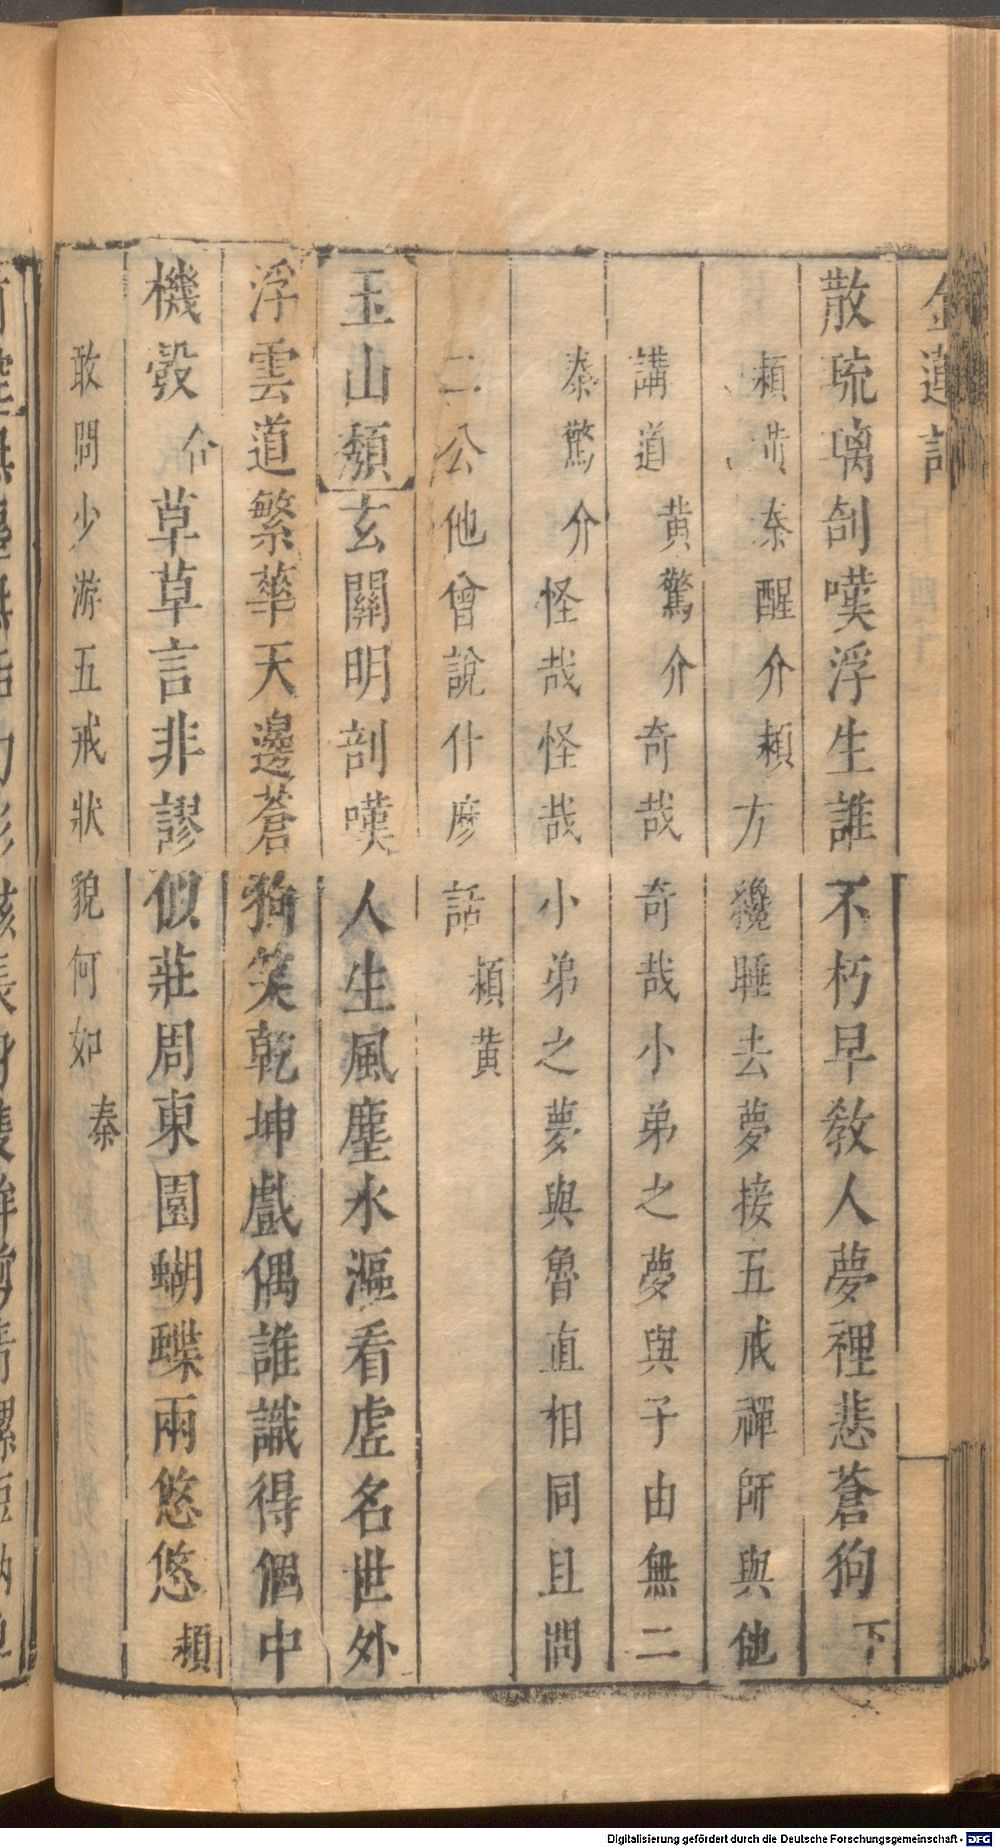 金蓮記
散琉璃刮嘆浮生誰不朽早教人夢裡悲蒼狗下
頴黄秦醒介頴方纔睡去夢接五戒禪師與他
講道黄驚介奇哉奇哉小弟之夢與子由無二
秦驚介怪哉怪哉小弟之夢與魯直相同且問
二公他曾說什麽話頴黄
玉山頹玄關明剖嘆人生風塵水漚看虛名世外
浮雲道繁華天邊蒼狗笑乾坤戲偶誰識得個中
機彀介草草言非謬似莊周東園蝴蝶兩悠悠頴
敢問少游五戒狀貌何如秦
Digitalisierung gefördert durch die Deutsche Forschungsgemeinschaft - DFG